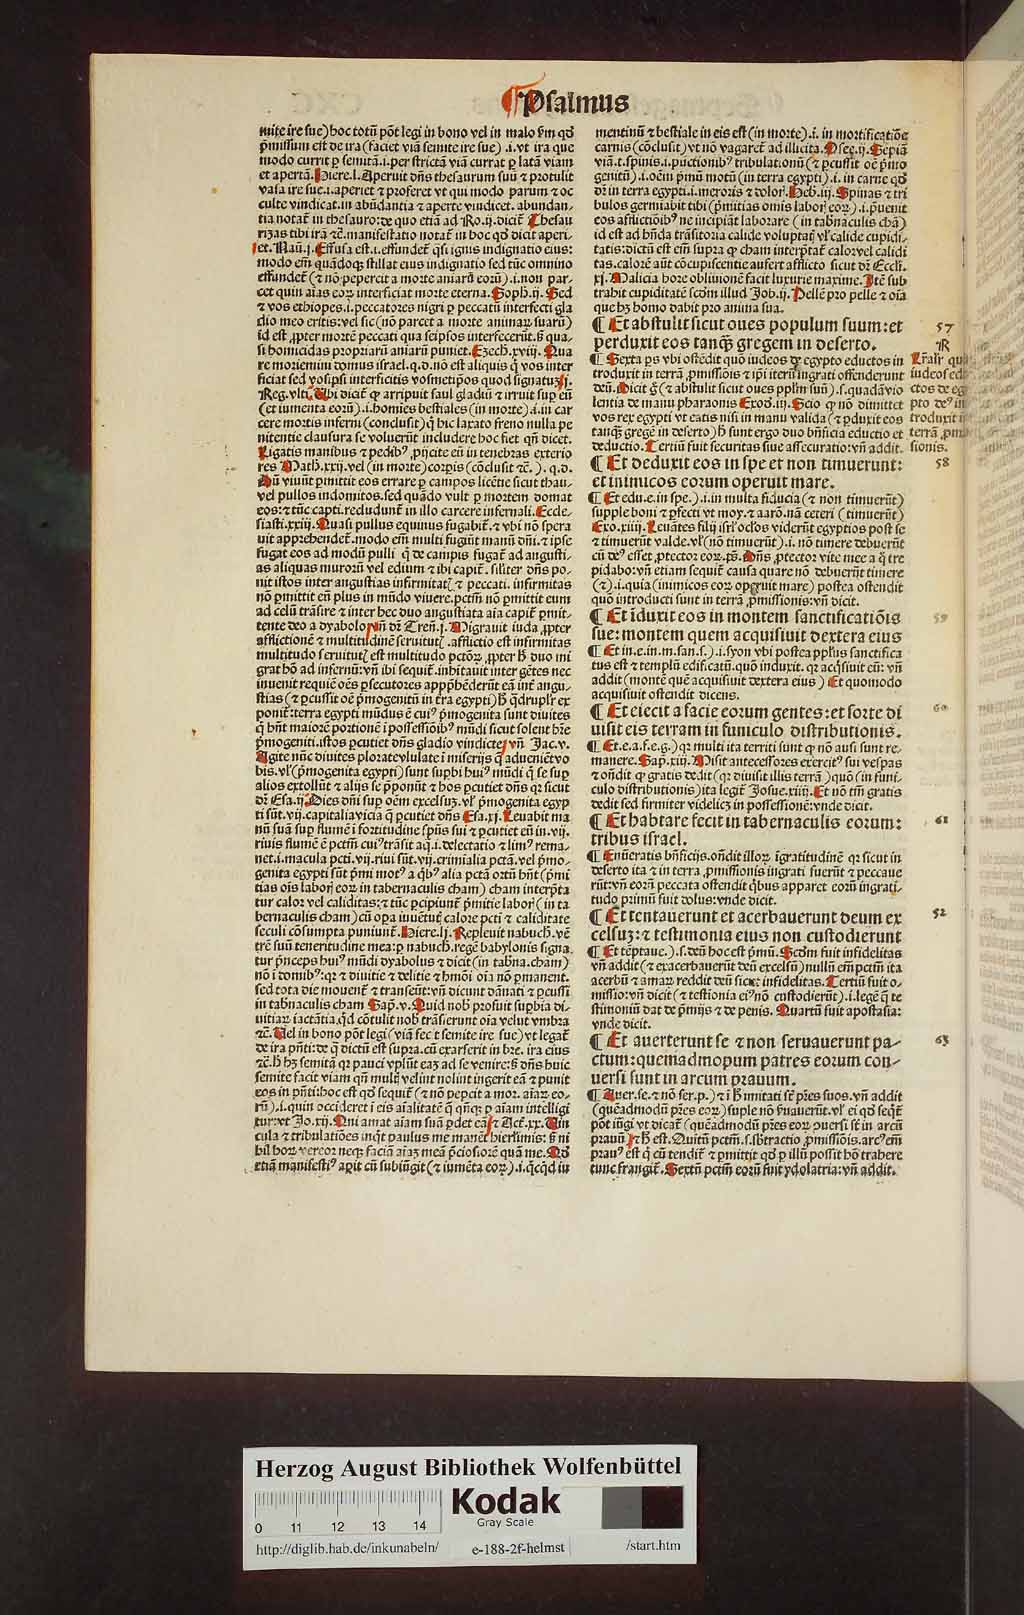 Psalmus
mite ire sue) hoc totũ põt legi in bono vel in malo ẜm qđ
p̃missum est de ira (faciet viã semite ire sue) .i. vt ira que
modo currit ꝑ semitã.i.per strictã viã currat ꝑ latã viam
et apertã. Hiere.l. Aperuit dñs thesaurum suũ ⁊ protulit
vasa ire sue.i.aperiet ⁊ proferet vt qui modo parum ⁊ oc
culte vindicat.in abũdantia ⁊ aperte vindicet. abundan-
tia notat̃ in thesauro: de quo etiã ad Ro.ij.dicit̃ Thesau
rizas tibi irã ⁊c̃. manifestatio notat̃ in hoc qđ dicit aperi-
et. Naũ.j. Effusa est.i.effundet̃ q̃si ignis indignatio eius:
modo em̃ quãdoq; stillat eius indignatio sed tũc omnino
effundet̃ (⁊ nõ pepercit a morte aniarũ eorũ) .i.non par-
cet quin aĩas eoꝝ interficiat morte eterna. Soph.ij. Sed
⁊ vos ethiopes.i.peccatores nigri ꝑ peccatũ interfecti gla
dio meo eritis: vel sic (nõ parcet a morte animaꝝ suarũ)
id est ꝓpter mortẽ peccati qua seipsos interfecerũt.g̊ qua-
si homicidas propriarũ aniarũ puniet. Ezech.xviij. Qua
re moriemini domus israel.q.d.nõ est aliquis q̃ vos inter
ficiat sed vosipsi interficitis vosmetip̃os quod signatuꝝ.j.
Reg.vlti. Ubi dicit̃ ꝙ arripuit saul gladiũ ⁊ irruit sup eũ
(et iumenta eorũ) .i.homĩes bestiales (in morte) .i. in car
cere mortis inferni (conclusit) q̃ hic laxato freno nulla pe
nitentie clausura se voluerũt includere hoc fiet qñ dicet.
Ligatis manibus ⁊ pedibꝰ ꝓijcite eũ in tenebras exterio
res Math.xxij.vel (in morte) corp̃is (cõclusit ⁊c̃. ). q.d.
Dũ viuũt ꝑmittit eos errare ꝑ campos licẽtie sicut thau-
vel pullos indomitos.sed quãdo vult ꝑ mortem domat
eos: ⁊ tũc capti.redudunt̃ in illo carcere infernali. Eccle-
siasti.xxiij. Quasi pullus equinus fugabit̃ ⁊ vbi nõ spera
uit apprehendet̃.modo em̃ multi fugiũt manũ dñi.⁊ ip̃se
fugat eos ad modũ pulli q̃ de campis fugat̃ ad angusti-
as aliquas murorũ vel edium ⁊ ibi capit̃. siliter dñs po-
nit istos inter angustias infirmitatꝭ ⁊ peccati. infirmitas
nõ ꝑmittit eũ plus in mũdo viuere.pctm̃ nõ ꝑmittit eum
ad celũ trãsire ⁊ inter hec duo angustiata aĩa capit̃ ꝑmit-
tente deo a dyabolo vñ dr̃ Treñ.j. Migrauit iuda ꝓpter
afflictionẽ ⁊ multitudinẽ seruitutꝭ.afflictio est infirmitas
multitudo seruitutꝭ est multitudo pctõꝝ ꝓpter h̃ duo mi
grat hõ ad infernũ: vñ ibi sequit̃.inhitauit inter gẽtes nec
inuenit requiẽ oẽs ꝑsecutores apprhẽderũt eã int̃ angu-
stias (⁊ ꝑcussit oẽ p̃mogenitũ in t̃ra egypti) h̃ q̃druplr̃ ex
ponit̃: terra egypti mũdus ẽ cuiꝰ p̃mogenita sunt diuites
q̃ hñt maiorẽ portionẽ ĩ possessiõibꝰ mũdi sicut solent hr̃e
p̃mogeniti.istos ꝑcutiet dñs gladio vindicte vñ Jac.v.
Agite nũc diuites plorate vlulate ĩ miserijs q̃ aduenient vo
bis.vl̃ (p̃mogenita egypti) sunt supbi huiꝰ mũdi q̃ se sup
alios extollũt ⁊ alijs se p̃ponũt ⁊ hos ꝑcutiet dñs qꝛ sicut
dr̃ Esa.ij. Dies dñi sup oẽm excelsuꝫ.vl̃ p̃mogenita egyp
ti sũt.vij.capitalia vicia q̃ ꝑcutiet dñs Esa.xj. Leuabit ma
nũ suã sup flumẽ ĩ fortitudine spũs sui ⁊ ꝑcutiet eũ in.vij.
riuis flumẽ ẽ pctm̃ cuiꝰ trãsit aq̃.i.delectatio ⁊ limꝰ rema-
net.i.macula pcti.vij.riui sũt.vij.crimialia pctã.vel p̃mo-
genita egypti sũt p̃mi motꝰ a q̃bꝰ alia pctã ortũ hñt (p̃mi
tias oĩs laborꝭ eoꝝ in tabernaculis cham) cham interp̃ta
tur calor vel caliditas: ⁊ tũc ꝑcipiunt̃ p̃mitie laborꝭ (in ta
bernaculis cham) cũ oꝑa iuuẽtutꝭ calore pcti ⁊ caliditate
seculi cõsumpta puniunt̃. Hiere.lj. Repleuit nabuch̃. vẽ
trẽ suũ teneritudine mea: ꝑ nabuch̃.regẽ babylonis signa
tur p̃nceps huiꝰ mũdi dyabolus ⁊ dicit (in tabna.cham)
nõ ĩ domibꝰ: qꝛ ⁊ diuitie ⁊ delitie ⁊ hmõi oĩa nõ ꝑmanent.
sed tota die mouent̃ ⁊ transeũt: vñ dicunt dãnati ⁊ ꝑcussi
in tabnaculis cham Sap̃.v. Quid nob̃ profuit supbia di-
uitiaꝝ iactãtia.q̃d cõtulit nob̃ trãsierunt oĩa velut vmbra
⁊c̃. Vel in bono põt legi (viã fec̃ t semite ire sue) vt legat̃
de ira pñti: de q̃ dictũ est supra.cũ exarserit in bre. ira eius
⁊c̃. h̃ hꝫ semitã qꝛ pauci vp̃lũt eaꝫ ad se venire: g̊ dñs huic
semite facit viam qñ multꝭ velint nolint ingerit eã ⁊ punit
eos in pñti: hoc est qđ sequit̃ (⁊ nõ peꝑcit a mor. aĩaꝝ eo-
rũ) .i. quin occideret ĩ eis aĩalitatẽ q̃ qñq; ꝑ aĩam intelligi
tur: vt Jo.xij. Qui amat aĩam suã ꝑdet eã ⁊ Act̃.xx. Vin
cula ⁊ tribulatiões inq̃t paulus me manẽt hierl̃imis: g̊ ni
hil hoꝝ vereor neq; faciã aĩaꝫ meã p̃ciosiorẽ quã me. Qđ
etiã manifestiꝰ aꝑit cũ subiũgit (⁊ iumẽta eoꝝ) .i.q̃cq̃d iu
mentinũ ⁊ bestiale in eis est (in morte) .i. in mortificatiõe
carnis (cõclusit) vt nõ vagaret̃ ad illicita. Osee.ij. Sepiã
viã.t.spinis.i.puctionibꝰ tribulationũ (⁊ ꝑcussit oẽ p̃mo
genitũ) .i.oẽm p̃mũ motũ (in terra egypti) .i. in carne qđ
dr̃ in terra egypti.i.meroris ⁊ dolorꝭ. Heb̃.iij. Spinas ⁊ tri
bulos germiabit tibi (p̃mitias omis laborꝭ eoꝝ) .i.p̃uenit
eos afflictiõibꝰ ne incipiãt laborare (in tabnaculis chã)
id est ad hñda trãsitoria calide voluptatꝭ vl̃ calide cupidi-
tatis: dictũ est em̃ supra ꝙ cham interp̃tat̃ calor vel calidi
tas.calorẽ aũt cõcupiscentie aufert afflictio sicut dr̃ Eccl̃i.
xj. Malicia hore obliuionẽ facit luxurie maxime. Itẽ sub
trahit cupiditatẽ scđm illud Job.ij. Pellẽ pro pelle ⁊ oĩa
que hꝫ homo dabit pro anima sua.
¶ Et abstulit sicut oues populum suum: et
perduxit eos tanq̃ꝫ gregem in deserto.
¶ Sexta ps vbi ostẽdit quõ iudeos de egypto eductos in
troduxit in terrã ꝓmissiõis ⁊ ip̃i iterũ ingrati offenderunt
deũ. Dicit g̊ (⁊ abstulit sicut oues pplm̃ suũ) .s.quadã vio
lentia de manu pharaonis Exod.iij. Scio ꝙ nõ dimittet
vos rex egypti vt eatis nisi in manu valida (⁊ ꝑduxit eos
tanq̃ꝫ gregẽ in deserto) h̃ sunt ergo duo bñficia eductio et
deductio. Tertiũ fuit securitas siue assecuratio: vñ addit.
¶ Et deduxit eos in spe et non timuerunt:
et inimicos eorum operuit mare.
¶ Et edu.e.in spe.) .i.in multa fiducia (⁊ non timuerũt)
supple boni ⁊ ꝑfecti vt moy.⁊ aarõ.nã ceteri (timuerũt)
Exo.xiiij. Leuãtes filij isrl̃ ocl̃os viderũt egyptios post se
⁊ timuerũt valde.vl̃ (nõ timuerũt) .i. nõ timere debuerũt
cũ deꝰ esset ꝓtector eoꝝ.ps̃. Dñs ꝓtector vite mee a q̃ tre
pidabo: vñ etiam sequit̃ causa quare nõ debuerũt timere
(⁊) .i.quia (inimicos eoꝝ operuit mare) postea ostendit
quõ introducti sunt in terrã ꝓmissionis: vñ dicit.
¶ Et iduxit eos in montem sanctificatiõis
sue: montem quem acquisiuit dextera eius
¶ Et in.e.in.m.san.s.) .i.syon vbi postea ppl̃us sanctifica
tus est ⁊ templũ edificatũ.quõ induxit. qꝛ acq̃siuit eũ: vñ
addit (montẽ quẽ acquisiuit dextera eius) Et quomodo
acquisiuit ostendit dicens.
¶ Et eiecit a facie eorum gentes: et sorte di
uisit eis terram in funiculo distributionis.
¶ Et.e.a.f.e.g.) qꝛ multi ita territi sunt ꝙ nõ ausi sunt re-
manere. Sap̃.xij. Misit antecessores exercitꝰ sui vespas
⁊ oñdit ꝙ gratis dedit (qꝛ diuisit illis terrã) quõ (in funi-
culo distributionis) ita legit̃ Josue.xiiij. Et nõ tm̃ gratis
dedit sed firmiter videlicꝫ in possessionẽ: vnde dicit.
¶ Et habtare fecit in tabernaculis eorum:
tribus israel.
¶ Enũeratis bñficijs.oñdit illoꝝ ĩgratitudinẽ qꝛ sicut in
deserto ita ⁊ in terra ꝓmissionis ingrati fuerũt ⁊ peccaue
rũt: vñ eorũ peccata ostendit q̃bus apparet eorũ ingrati-
tudo primũ fuit dolus: vnde dicit.
¶ Et tentauerunt et acerbauerunt deum ex
celsuꝫ: ⁊ testimonia eius non custodierunt
¶ Et tẽptaue.) .s.deũ hoc est p̃mũ. Scđm fuit infidelitas
vñ addit (⁊ exacerbauerũt deũ excelsũ) nullũ em̃ pctm̃ ita
acerbũ ⁊ amaꝝ reddit deũ sicut infidelitas. Tertiũ fuit o-
missio: vñ dicit (⁊ testionia eiꝰ nõ custodierũt) .i.legẽ q̃ te
stimoniũ dat de p̃mijs ⁊ de penis. Quartũ fuit apostasia:
vnde dicit.
¶ Et auerterunt se ⁊ non seruauerunt pa-
ctum: quemadmopum patres eorum con-
uersi sunt in arcum prauum.
¶ Auer.se.⁊ nõ ser.p.) ⁊ ĩ h̃ imitati st̃ pr̃es suos.vñ addit
(quẽadmodũ pr̃es eoꝝ) suple nõ ẜuauerũt.vl̃ ei qđ seq̃t̃
põt iũgi vt dicat̃ (quẽadmodũ pr̃es eoꝝ ꝑuersi st̃ in arcũ
prauũ) ⁊ h̃ est. Quitũ pctm̃.s.sbtractio ꝓmissiõis.arcꝰ em̃
prauꝰ est q̃ cũ tendit̃ ⁊ ꝑmittit qđ ꝑ illũ possit hõ trahere
tunc frangit̃. Sextũ pctm̃ eorũ fuit ydolatria: vñ addit.
57
iudeos ed
ctos de eg
pto deꝰ in
troduxit i
terrã ꝓm
sionis.
58
59
60
61
52
63
Herzog August Bibliothek Wolfenbüttel
Kodak
Gray Scale
0 11 12 13 14
http://diglib.hab.de/inkunabeln/ e-188-2f-helmst /start.htm